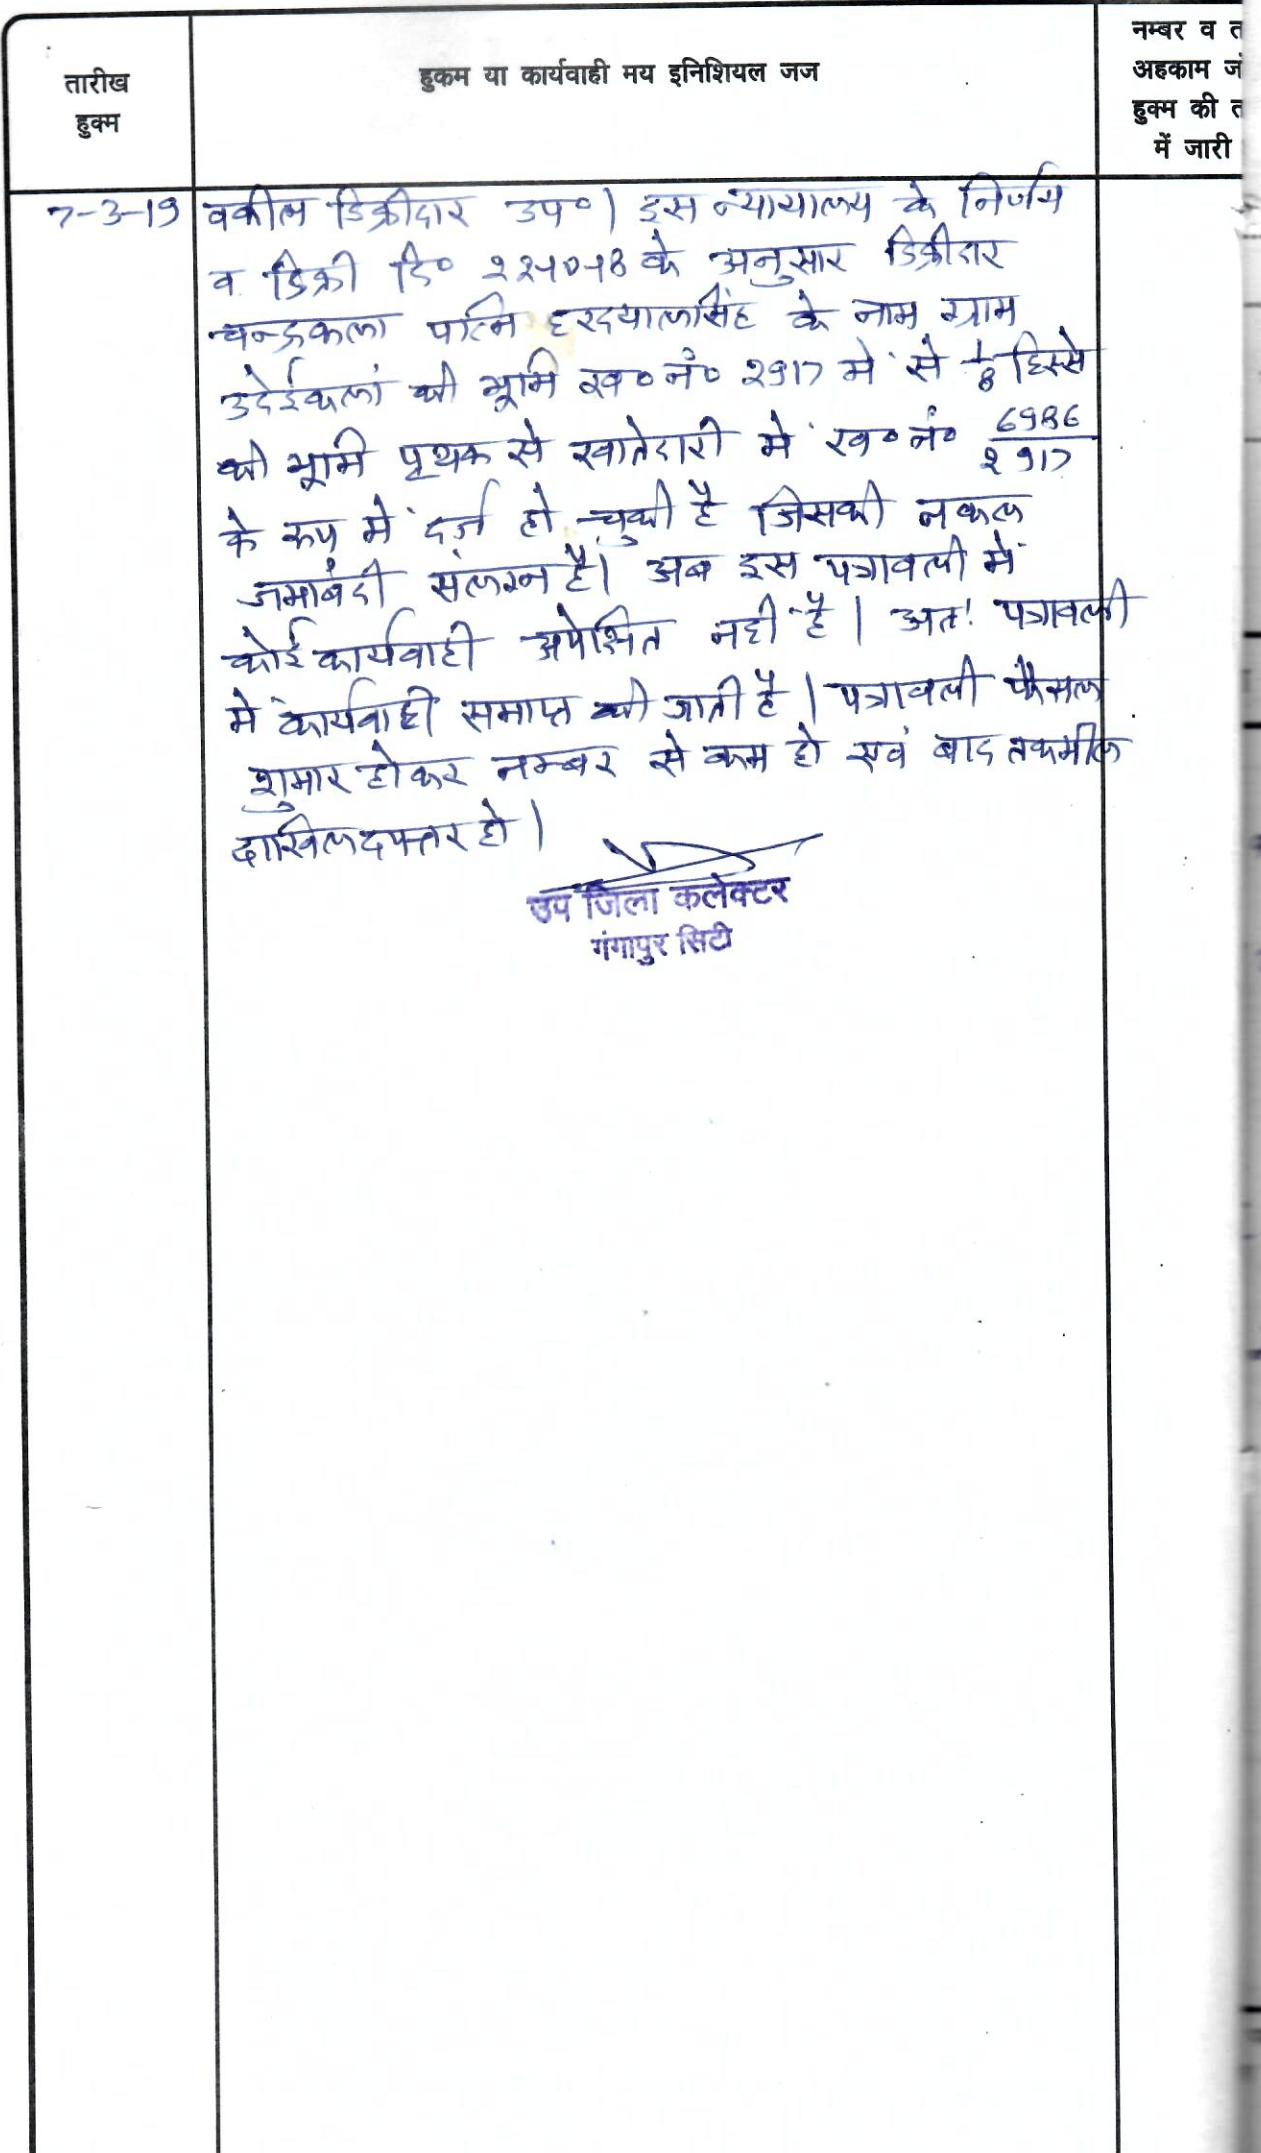 तारीख
हुक्म
हुकम या कार्यवाही मय इनिशियल जज
नम्बर व त
अहकाम ज
हुक्म की त
में जारी
7-3-19 वकील डिक्रीदार उप०। इस न्यायालय के निर्णय
व डिक्री दि० के अनुसार डिक्रीदार
चन्द्रकला पत्नि हरदयालसिंह के नाम ग्राम
उदेईकलां की भूमि ख० नं० 2917 में से 1/8 हिस्से
की भूमि पृथक से खातेदारी में ख० नं० 6986/2917
के रूप में दर्ज हो चुकी है जिसकी नकल
जमाबंदी संलग्न है। अब इस पत्रावली में
कोई कार्यवाही अपेक्षित नही है। अतः पत्रावली
में कार्यवाही समाप्त की जाती है। पत्रावली फैसल
शुमार होकर नम्बर से कम हो एवं बाद तकमील
दाखिल दफ्तर हो।
उप जिला कलेक्टर
गंगापुर सिटी